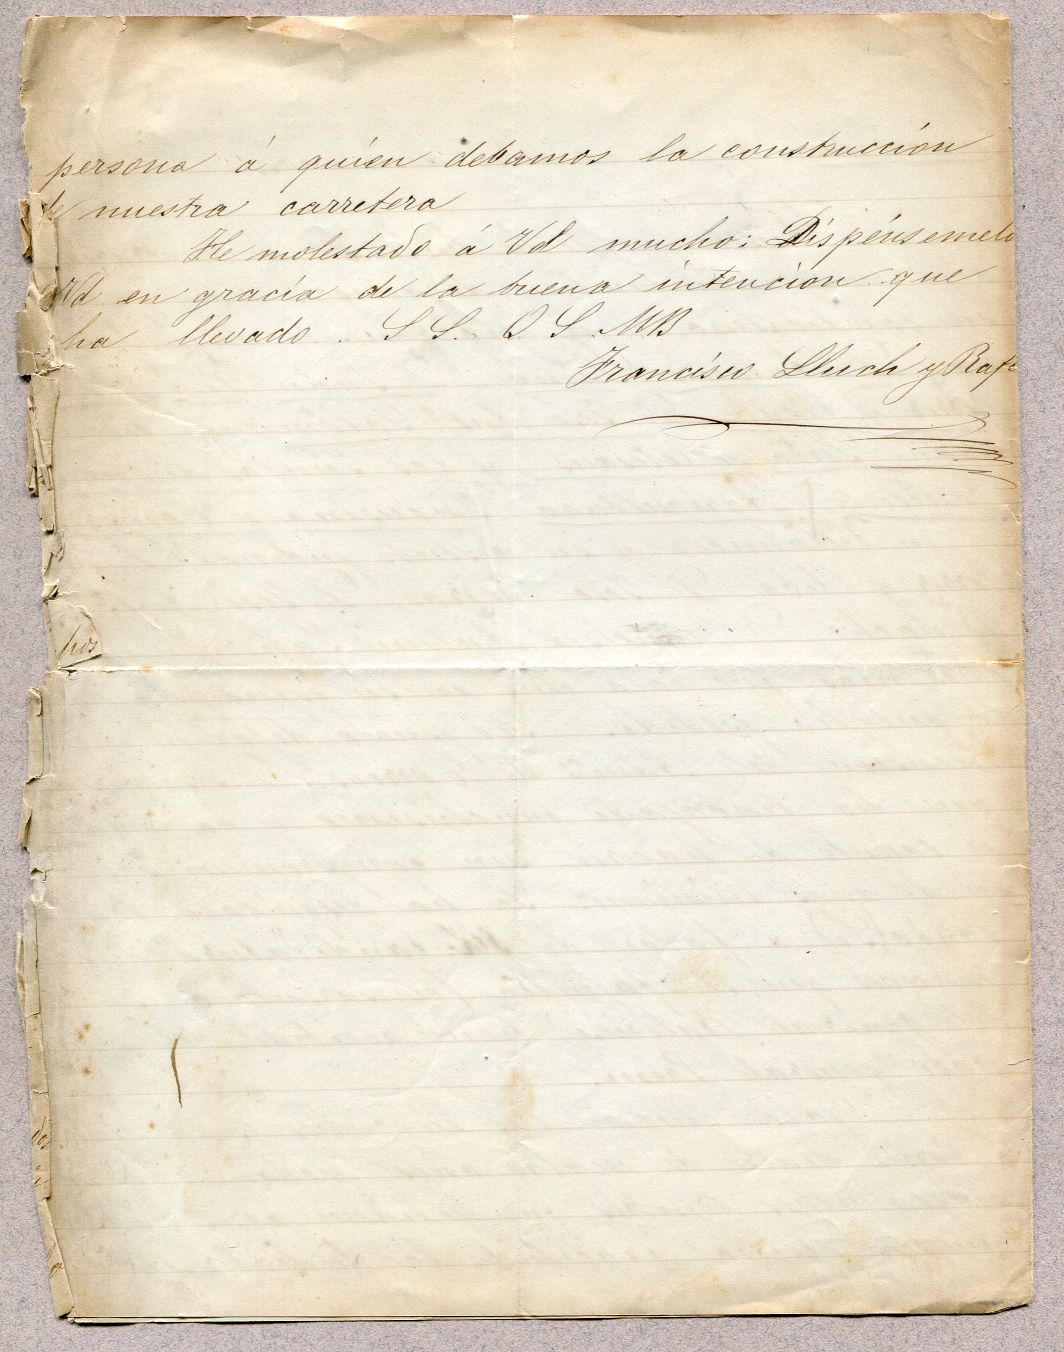 persona á quien debamos la construcción
de nuestra carretera
He molestado á Vd mucho: Dispénsemelo
Vd en gracia de la buena intención que
ha llevado. S S. Q S. M B
Francisco Lluch y Rafe
dos